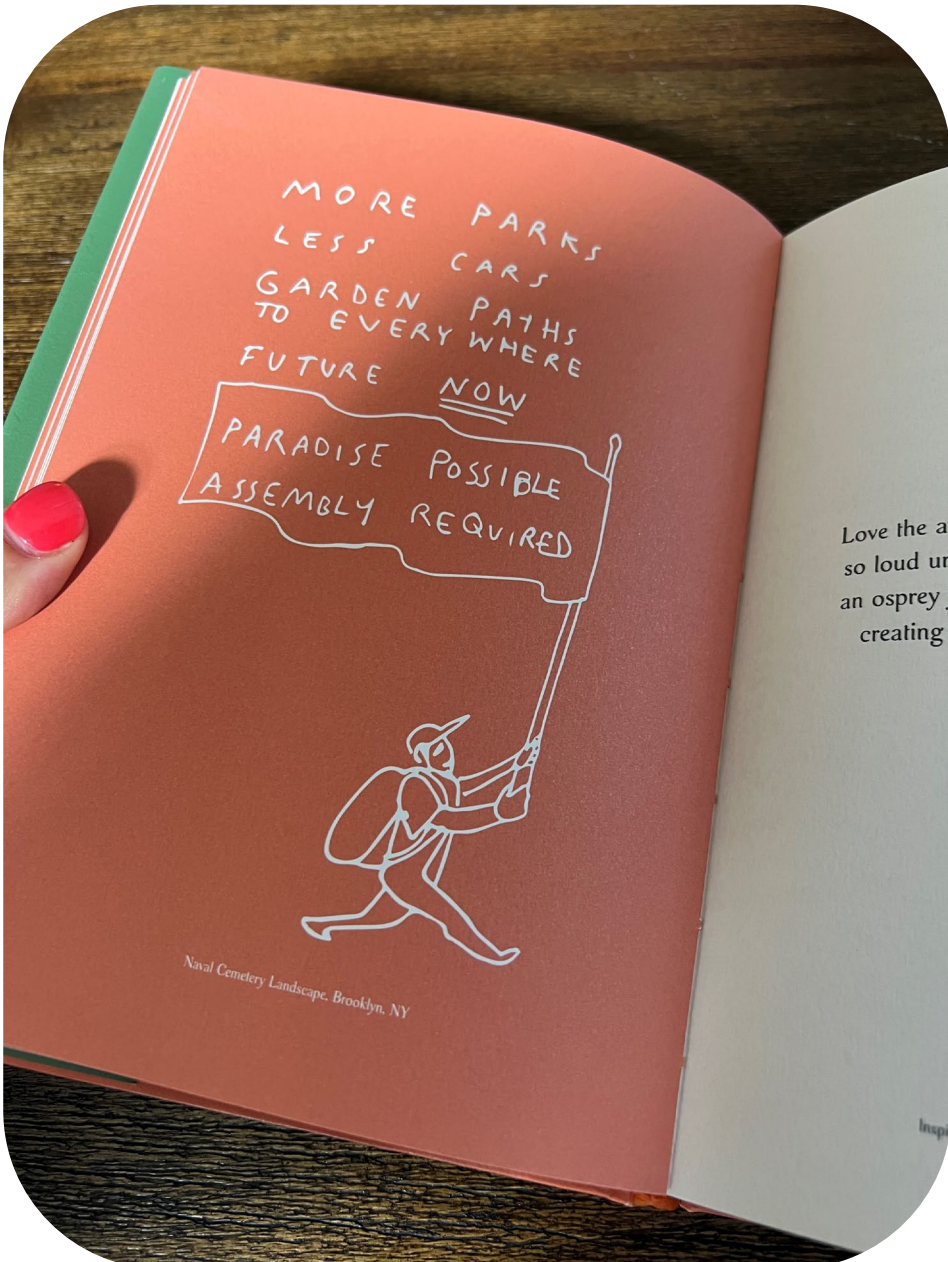 MORE PARKS
LESS CARS
GARDEN PATHS
TO EVERYWHERE
FUTURE NOW
PARADISE POSSIBLE
ASSEMBLY REQUIRED
Naval Cemetery Landscape, Brooklyn, NY
Love the
so loud
an osprey
creating